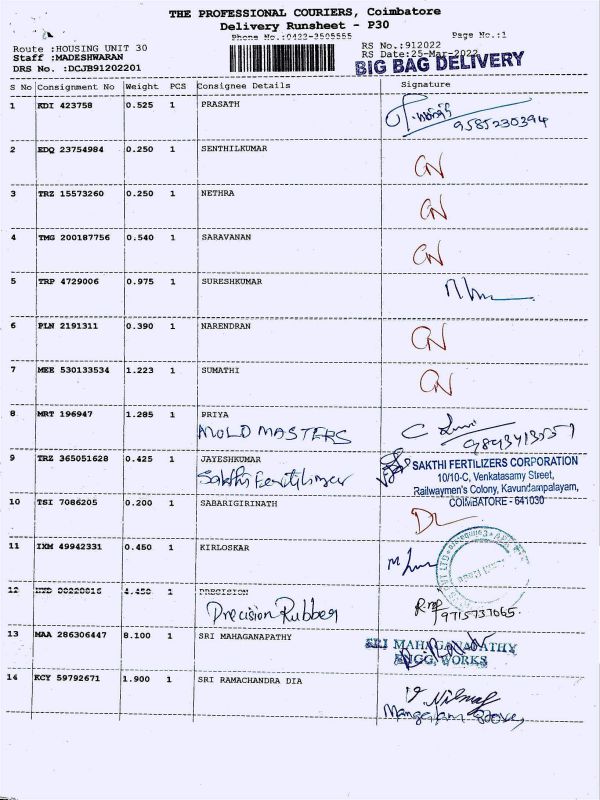 THE PROFESSIONAL COURIERS, Coimbatore
Delivery Runsheet - P30
Phone No.:0422-3505555 Page No.:1
Route :HOUSING UNIT 30 RS No.:912022
Staff :MADESHWARAN RS Date:25-Mar-2022
DRS No. :DCJB91202201 BIG BAG DELIVERY
S No Consignment No Weight PCS Consignee Details Signature
1 KDI 423758 0.525 1 PRASATH
9585230394
2 EDQ 23754984 0.250 1 SENTHILKUMAR CN
3 TRZ 15573260 0.250 1 NETHRA CN
4 TMG 200187756 0.540 1 SARAVANAN CN
5 TRP 4729006 0.975 1 SURESHKUMAR
6 PLN 2191311 0.390 1 NARENDRAN CN
7 MEE 530133534 1.223 1 SUMATHI CN
8 MRT 196947 1.285 1 PRIYA
MOLD MASTERS
9 TRZ 365051628 0.425 1 JAYESHKUMAR SAKTHI FERTILIZERS CORPORATION
Sakthi Fertilizer 10/10-C, Venkatasamy Street,
Railwaymen's Colony, Kavundampalayam,
COIMBATORE - 641030
10 TSI 7086205 0.200 1 SABARIGIRINATH DL
11 IXM 49942331 0.450 1 KIRLOSKAR
12 4.450 1 PRECISION
Precision Rubber 9715737065
13 MAA 286306447 8.100 1 SRI MAHAGANAPATHY SRI MAHAGANAPATHY
ENGG. WORKS
14 KCY 59792671 1.900 1 SRI RAMACHANDRA DIA